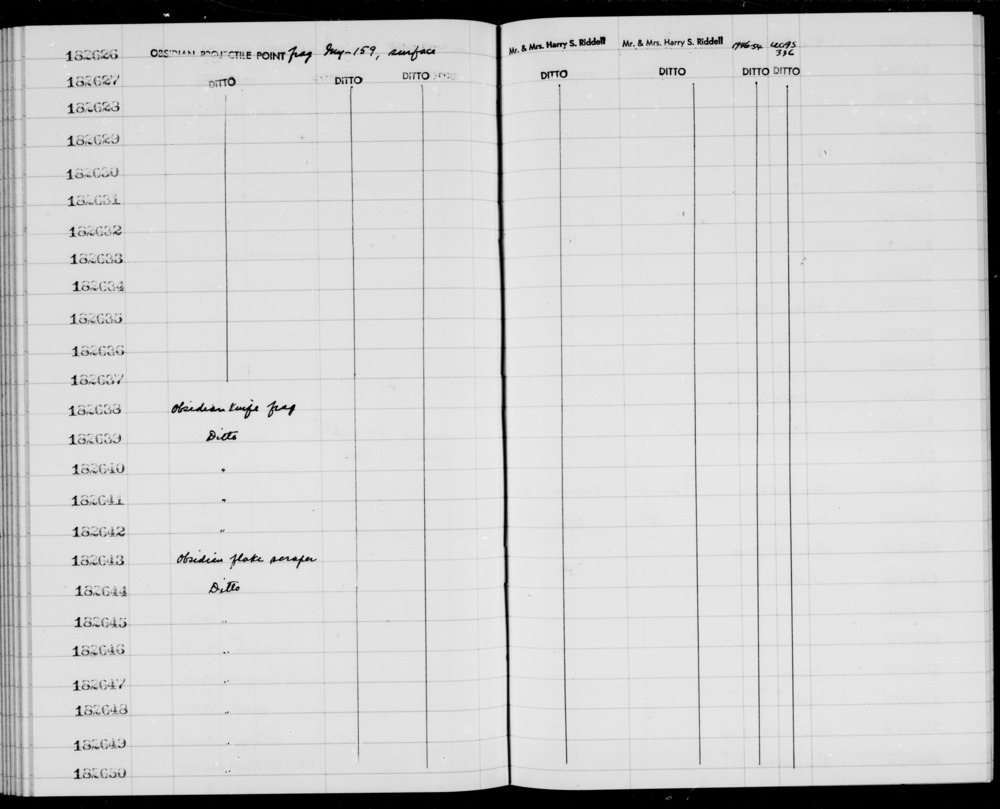 182626 OBSIDIAN PROJECTILE POINT frag Iny-159, surface Mr. & Mrs. Harry S. Riddell Mr. & Mrs. Harry S. Riddell 336
182627 DITTO DITTO DITTO DITTO DITTO DITTO DITTO
182628
182629
182630
182631
182632
182633
182634
182635
182636
182637
182638 Obsidian knife frag
182639 Ditto
182640 "
182641 "
182642 "
182643 Obsidian flake scraper
182644 Ditto
182645 "
182646 "
182647 "
182648 "
182649 "
182650 "